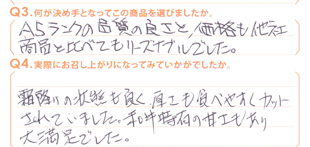 Q3.何が決め手となってこの商品を選びましたか。
A5ランクの品質の良さと、価格も他社
商品と比べてもリーズナブルでした。
Q4.実際にお召し上がりになってみていかがでしたか。
霜降りの状態も良く、厚さも食べやすくカット
されていました。和牛特有の甘さもあり
大満足でした。